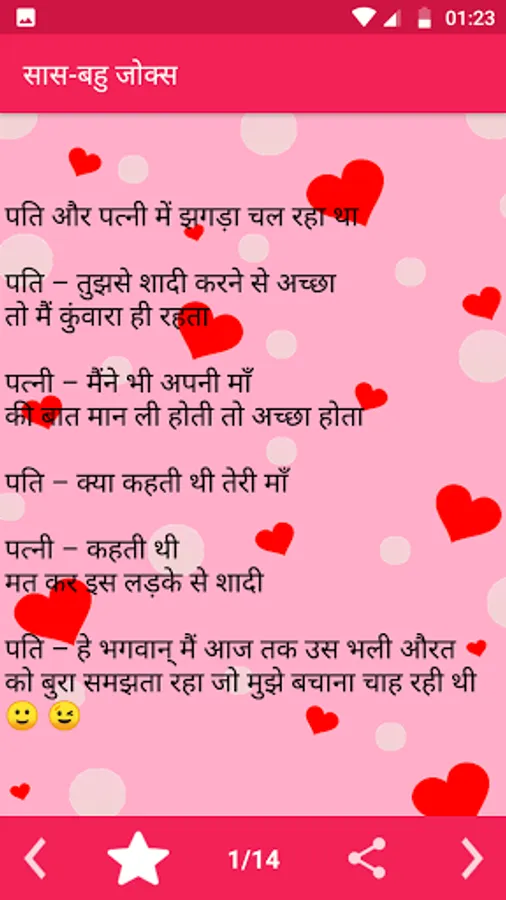 01:23
सास-बहु जोक्स
पति और पत्नी में झगड़ा चल रहा था
पति – तुझसे शादी करने से अच्छा
तो मैं कुंवारा ही रहता
पत्नी – मैंने भी अपनी माँ
की बात मान ली होती तो अच्छा होता
पति – क्या कहती थी तेरी माँ
पत्नी – कहती थी
मत कर इस लड़के से शादी
पति – हे भगवान् मैं आज तक उस भली औरत
को बुरा समझता रहा जो मुझे बचाना चाह रही थी
🙂 😉
1/14